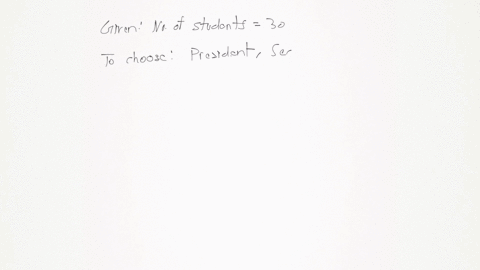 Given: No of students = 30
To choose: President, Sec